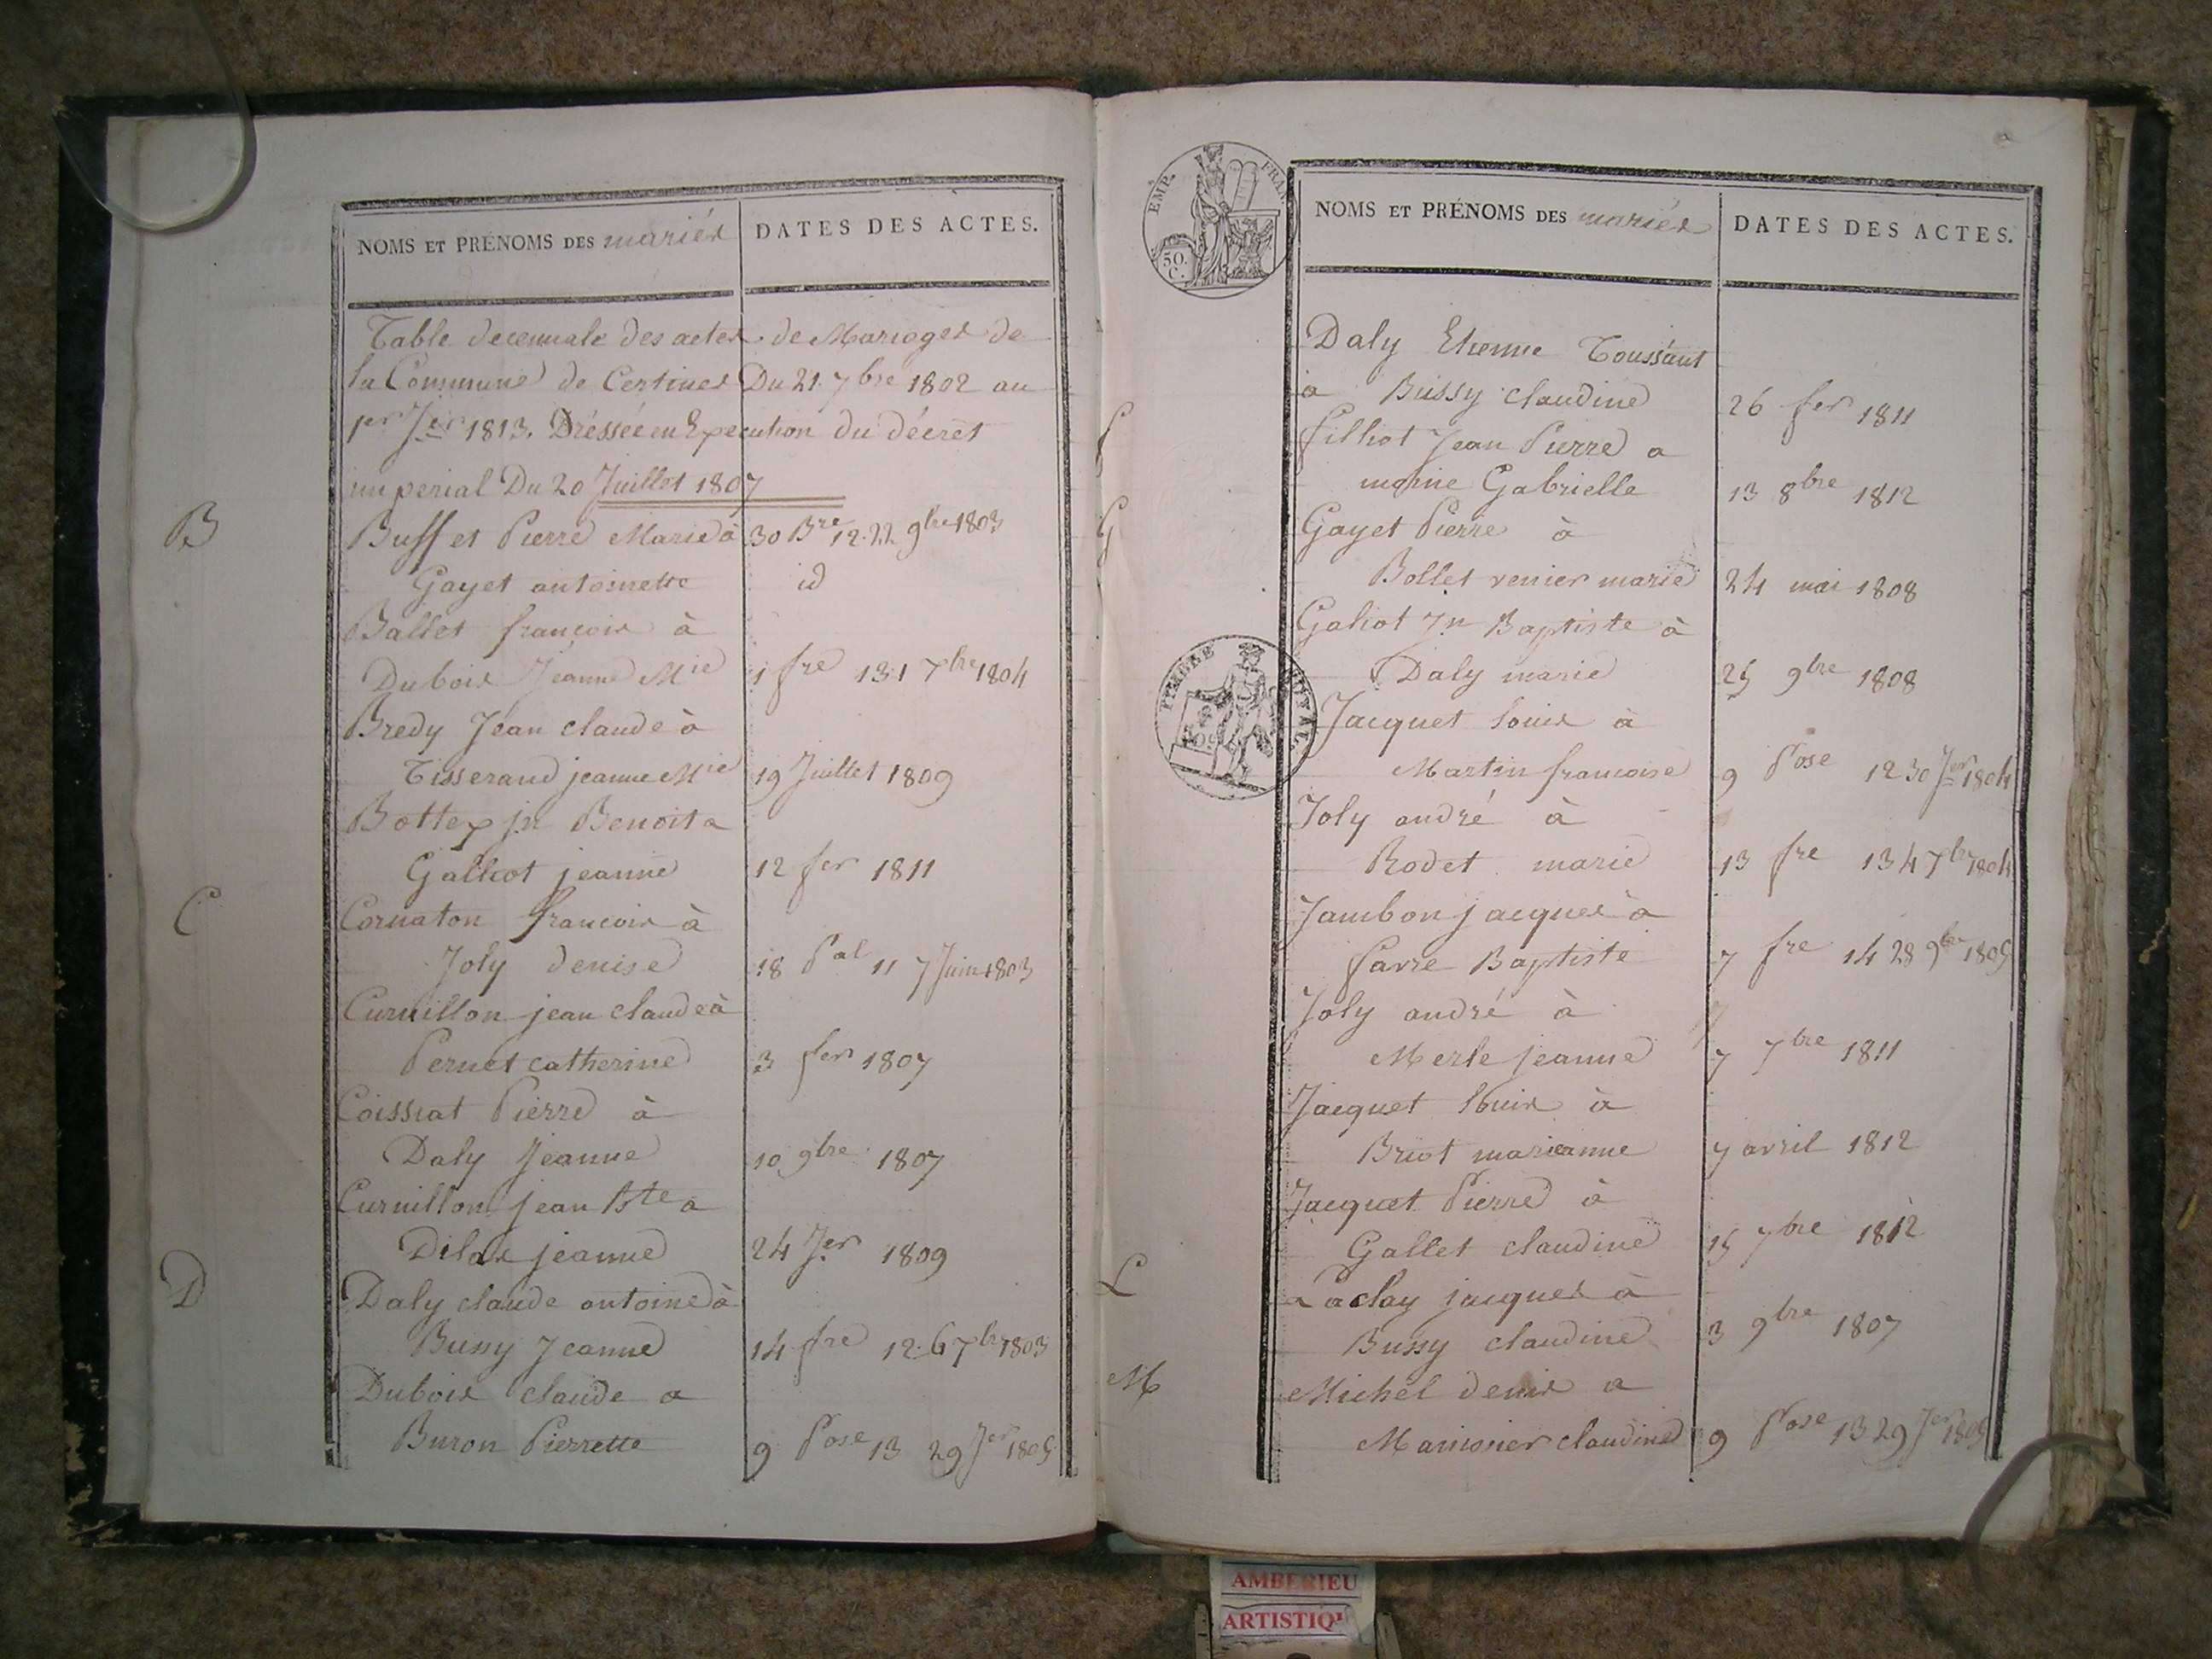 NOMS ET PRÉNOMS DES mariés DATES DES ACTES.
Table decennale des actes de Mariages de
la Commune de Certines Du 21 7bre 1802 au
1er Jer 1813. Dréssée en Execution du décret
imperial Du 20 Juillet 1807
B
Buffet Pierre Marie à 30 Bre 12. 22 9bre 1803
Gayet antoinette id
Ballet françois à
Dubois Jeanne Mie 1 fre 13. 1 7bre 1804
Bredy Jean claude à
Tisserand jeanne Mie 19 Juillet 1809
Bottex jn Benoit a
Galliot jeanne 12 fer 1811
C
Cornaton francois à
Joly denise 18 Pal 11 7 Juin 1803
Curnillon jean claude à
Pernet catherine 3 fer 1807
Coissiat Pierre à
Daly Jeanne 10 9bre 1807
Curnillon jean Bte a
Dilas jeanne 24 Jer 1809
D
Daly claude antoine à
Bussy Jeanne 14 fre 12. 6 7bre 1803
Dubois claude a
Buron Pierrette 9 Pose 13 29 Jer 1805
EMP. FRAN.
50.
C.
NOMS ET PRÉNOMS DES mariés DATES DES ACTES.
Daly Etienne Toussaint
à Bussy claudine 26 fer 1811
f
filliot Jean Pierre a
moine Gabrielle 13 8bre 1812
G
Gayet Pierre à
Bollet venier marie 24 mai 1808
Galiot Jn Baptiste à
Daly marie 25 9bre 1808
TIMBRE ROYAL.
Jacquet louis à
Martin francoise 9 Pose 12 30 Jer 1804
Joly andré à
Rodet marie 13 fre 13 4 7bre 1804
Jambon jacques a
favre Baptiste 7 fre 14 28 9bre 1805
Joly andré à
Merle jeanne 7 7bre 1811
Jacquet louis à
Briot marieanne 7 avril 1812
Jacquet Pierre à
Gallet claudine 15 7bre 1812
L
Laclay jacques à
Bussy claudine 3 9bre 1807
M
Michel denis a
Manissier claudine 9 Pose 13 29 Jer 1805
AMBERIEU
ARTISTIQ